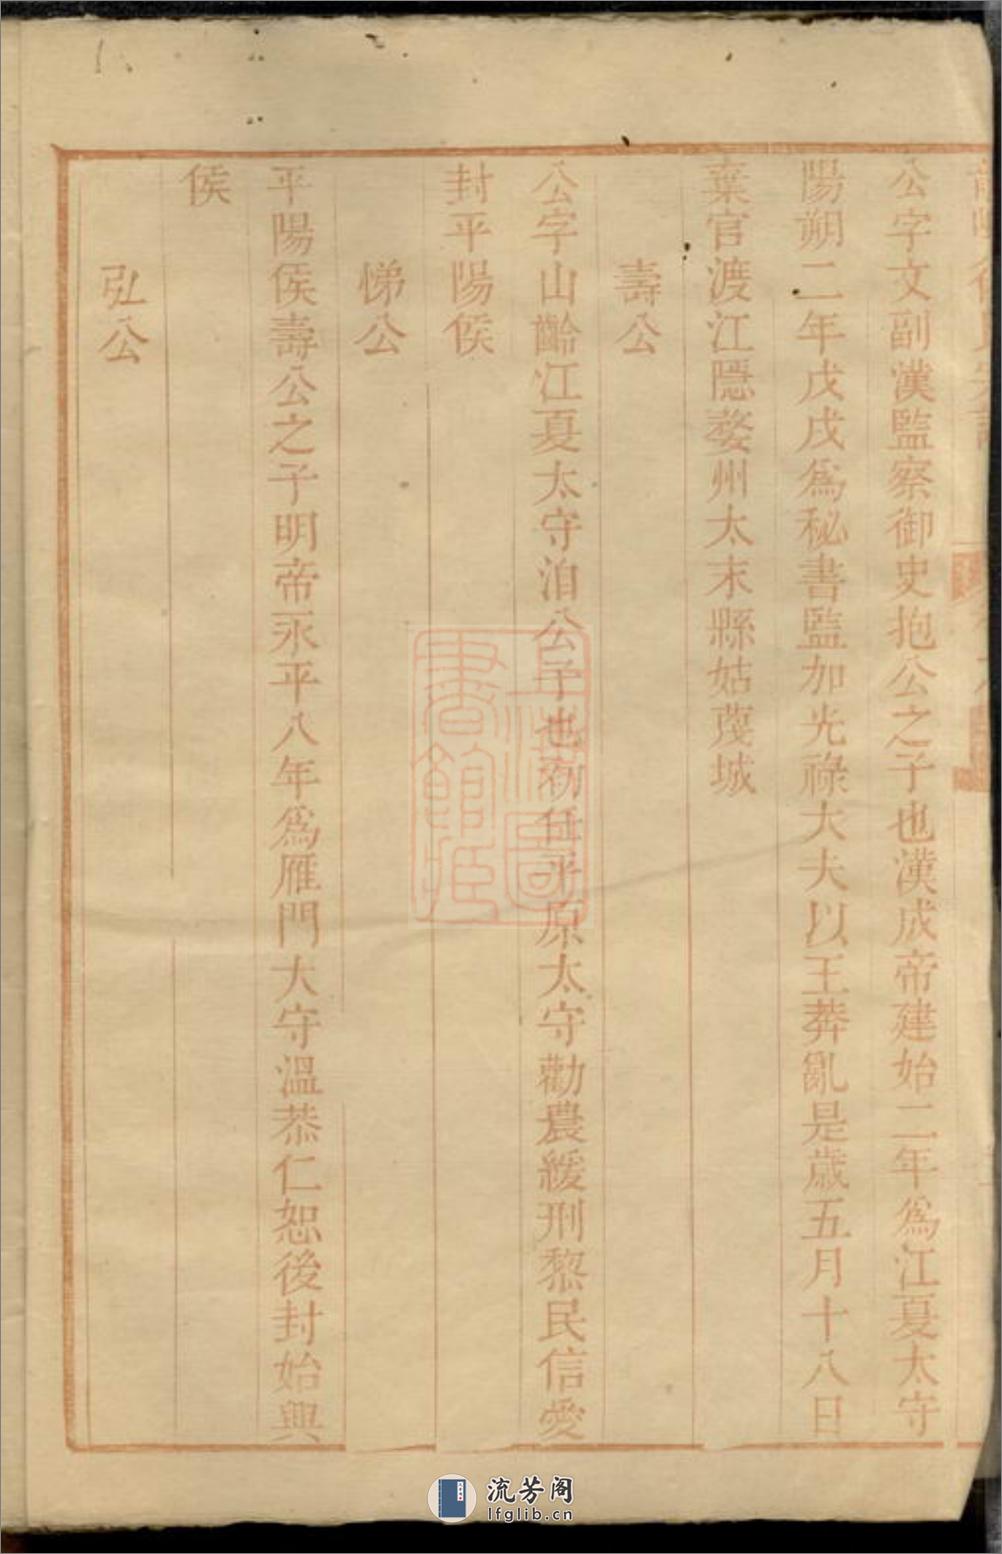 公字文副漢監察御史抱公之子也漢成帝建始二年為江夏太守
陽朔二年戊戌為秘書監加光祿大夫以王莽亂是歲五月十八日
棄官渡江隱婺州太末縣姑蔑城
壽公
公字山齡江夏太守洎公子也初任平原太守勸農緩刑黎民信愛
封平陽侯
悌公
平陽侯壽公之子明帝永平八年為雁門大守溫恭仁恕後封始興
侯
弘公
流芳阁
lfglib.cn